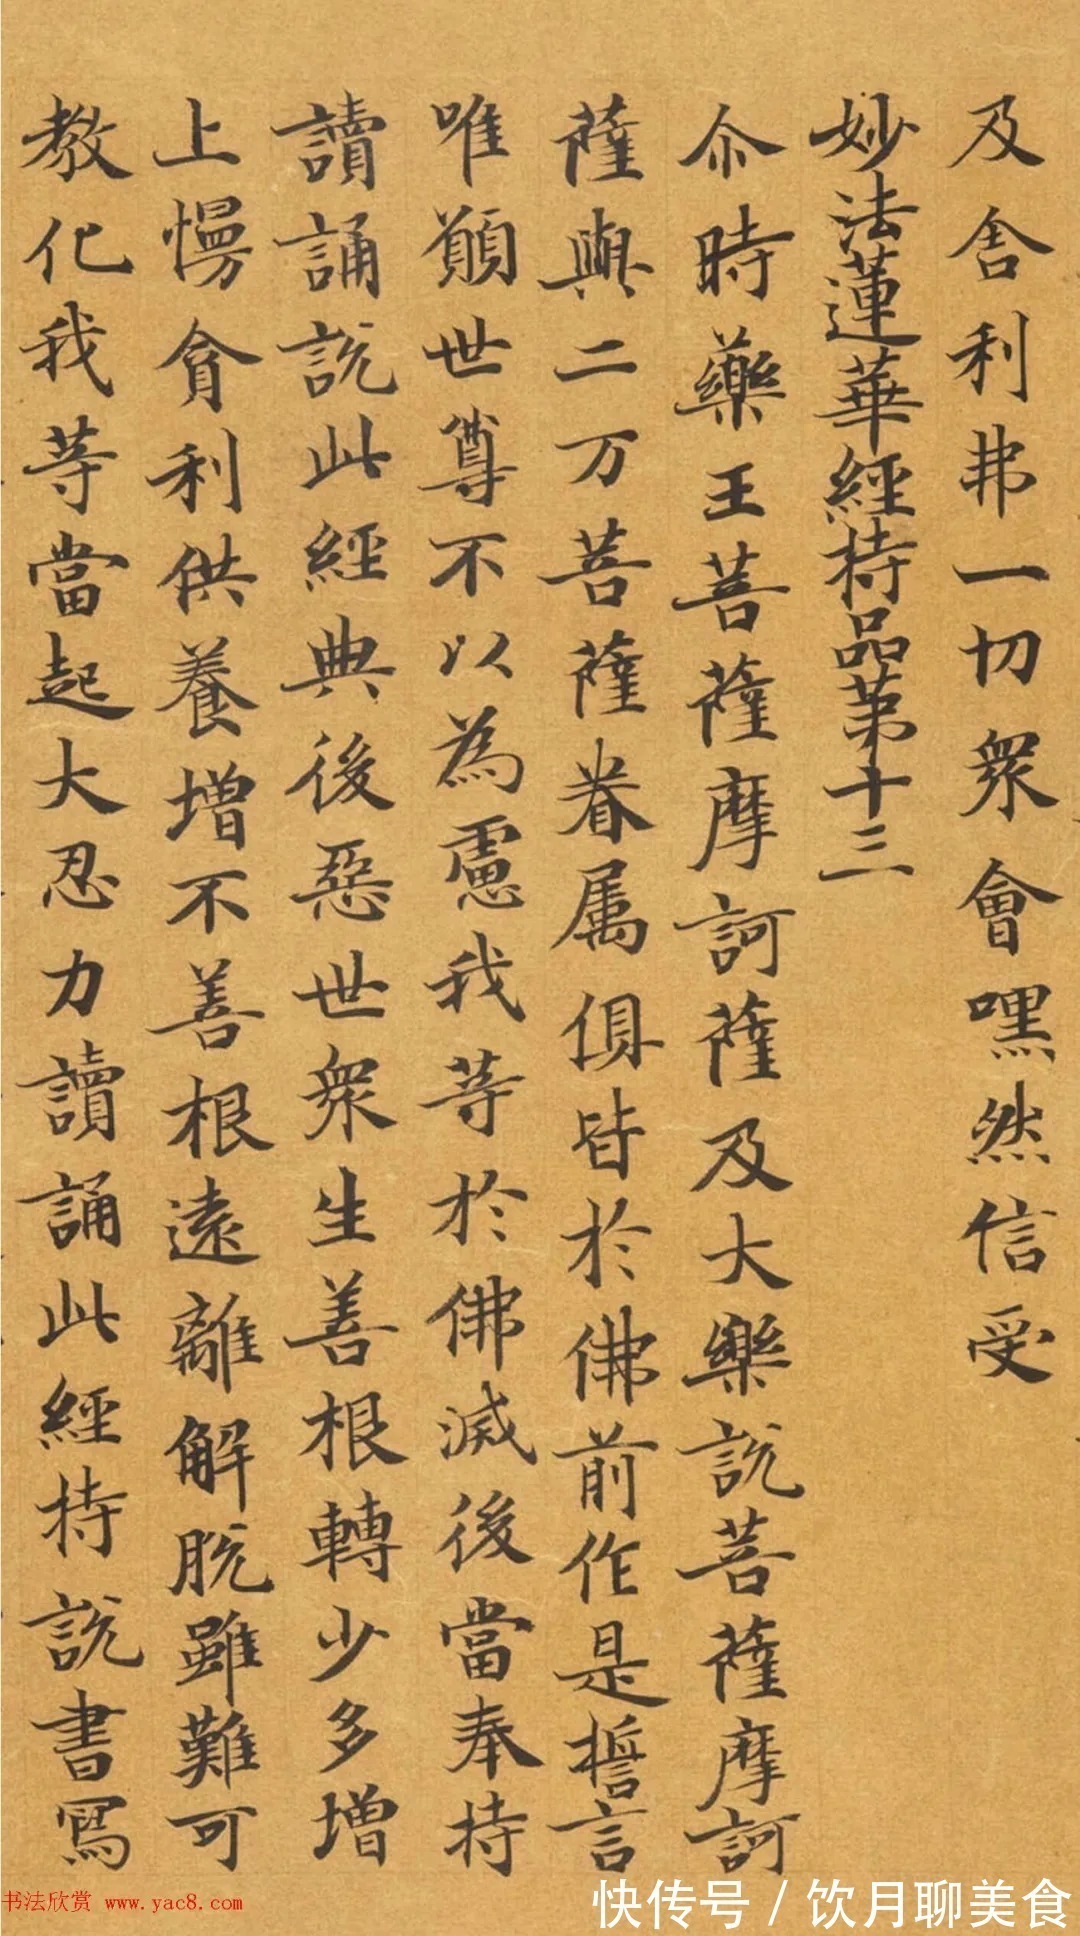 及舍利弗一切眾會嘿然信受
妙法蓮華經持品第十三
尒時藥王菩薩摩訶薩及大樂說菩薩摩訶
薩與二万菩薩眷属俱皆於佛前作是誓言
唯願世尊不以為慮我等於佛滅後當奉持
讀誦說此經典後惡世眾生善根轉少多增
上慢貪利供養增不善根遠離解脫雖難可
教化我等當起大忍力讀誦此經持說書寫
书法欣赏 www.yac8.com
快传号 / 饮月聊美食